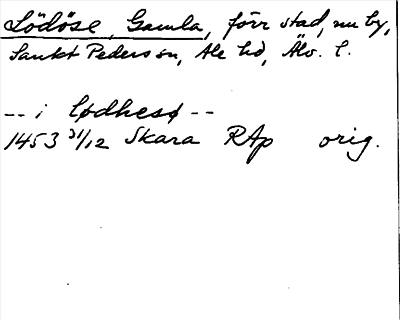 Lödöse, Gamla, förr stad, nu by,
Sankt Peders sn, Ale hd, Älv. l.
-- i lødhesø --
1453 31/12 Skara RAp orig.